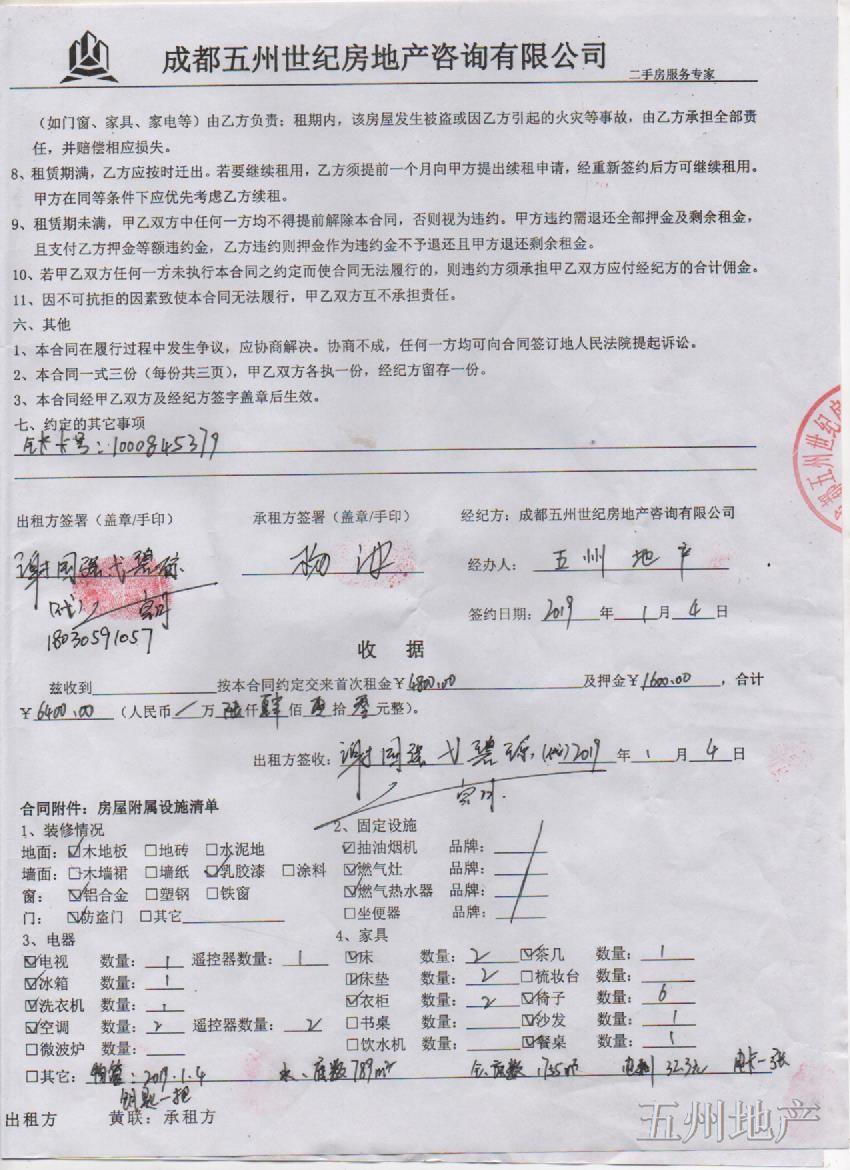 成都五州世纪房地产咨询有限公司
二手房服务专家
（如门窗、家具、家电等）由乙方负责；租期内，该房屋发生被盗或因乙方引起的火灾等事故，由乙方承担全部责
任，并赔偿相应损失。
8、租赁期满，乙方应按时迁出。若要继续租用，乙方须提前一个月向甲方提出续租申请，经重新签约后方可继续租用。
甲方在同等条件下应优先考虑乙方续租。
9、租赁期未满，甲乙双方中任何一方均不得提前解除本合同，否则视为违约。甲方违约需退还全部押金及剩余租金，
且支付乙方押金等额违约金，乙方违约则押金作为违约金不予退还且甲方退还剩余租金。
10、若甲乙双方任何一方未执行本合同之约定而使合同无法履行的，则违约方须承担甲乙双方应付经纪方的合计佣金。
11、因不可抗拒的因素致使本合同无法履行，甲乙双方互不承担责任。
六、其他
1、本合同在履行过程中发生争议，应协商解决。协商不成，任何一方均可向合同签订地人民法院提起诉讼。
2、本合同一式三份（每份共三页），甲乙双方各执一份，经纪方留存一份。
3、本合同经甲乙双方及经纪方签字盖章后生效。
七、约定的其它事项
卡号：1000845379
五州世纪房
出租方签署（盖章/手印） 承租方签署（盖章/手印） 经纪方：成都五州世纪房地产咨询有限公司
谢同强 戈碧琼 杨 经办人：五州地产
（代）
18030591057 签约日期：2019 年 1 月 4 日
收 据
兹收到 按本合同约定交来首次租金￥4800.00 及押金￥1600.00，合计
￥6400.00（人民币/万陆仟肆佰零拾零元整）。
出租方签收：谢同强 戈碧琼（代）2019 年 1 月 4 日
合同附件：房屋附属设施清单
1、装修情况 2、固定设施
地面：☑木地板 □地砖 □水泥地 ☑抽油烟机 品牌：
墙面：□木墙裙 □墙纸 ☑乳胶漆 □涂料 ☑燃气灶 品牌：
窗：☑铝合金 □塑钢 □铁窗 ☑燃气热水器 品牌：
门：☑防盗门 □其它 □坐便器 品牌：
3、电器 4、家具
☑电视 数量：1 遥控器数量：1 ☑床 数量：2 ☑茶几 数量：1
☑冰箱 数量：1 ☑床垫 数量：2 □梳妆台 数量：
☑洗衣机 数量：1 ☑衣柜 数量：2 ☑椅子 数量：6
☑空调 数量：2 遥控器数量：2 □书桌 数量： ☑沙发 数量：1
□微波炉 数量： □饮水机 数量： ☑餐桌 数量：1
□其它：2019.1.4 水、度数789m³ 度数 1735 32.3元 卡一张
钥匙一把
出租方 黄联：承租方
五州地产